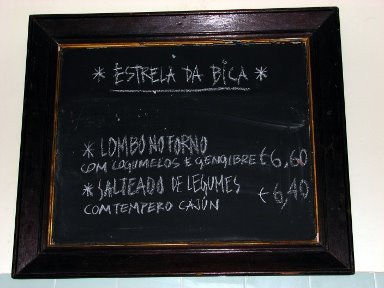 * ESTRELA DA BICA *
* LOMBO NO FORNO
COM COGUMELOS E GENGIBRE €6,60
* SALTEADO DE LEGUMES
COM TEMPERO CAJUN €6,40